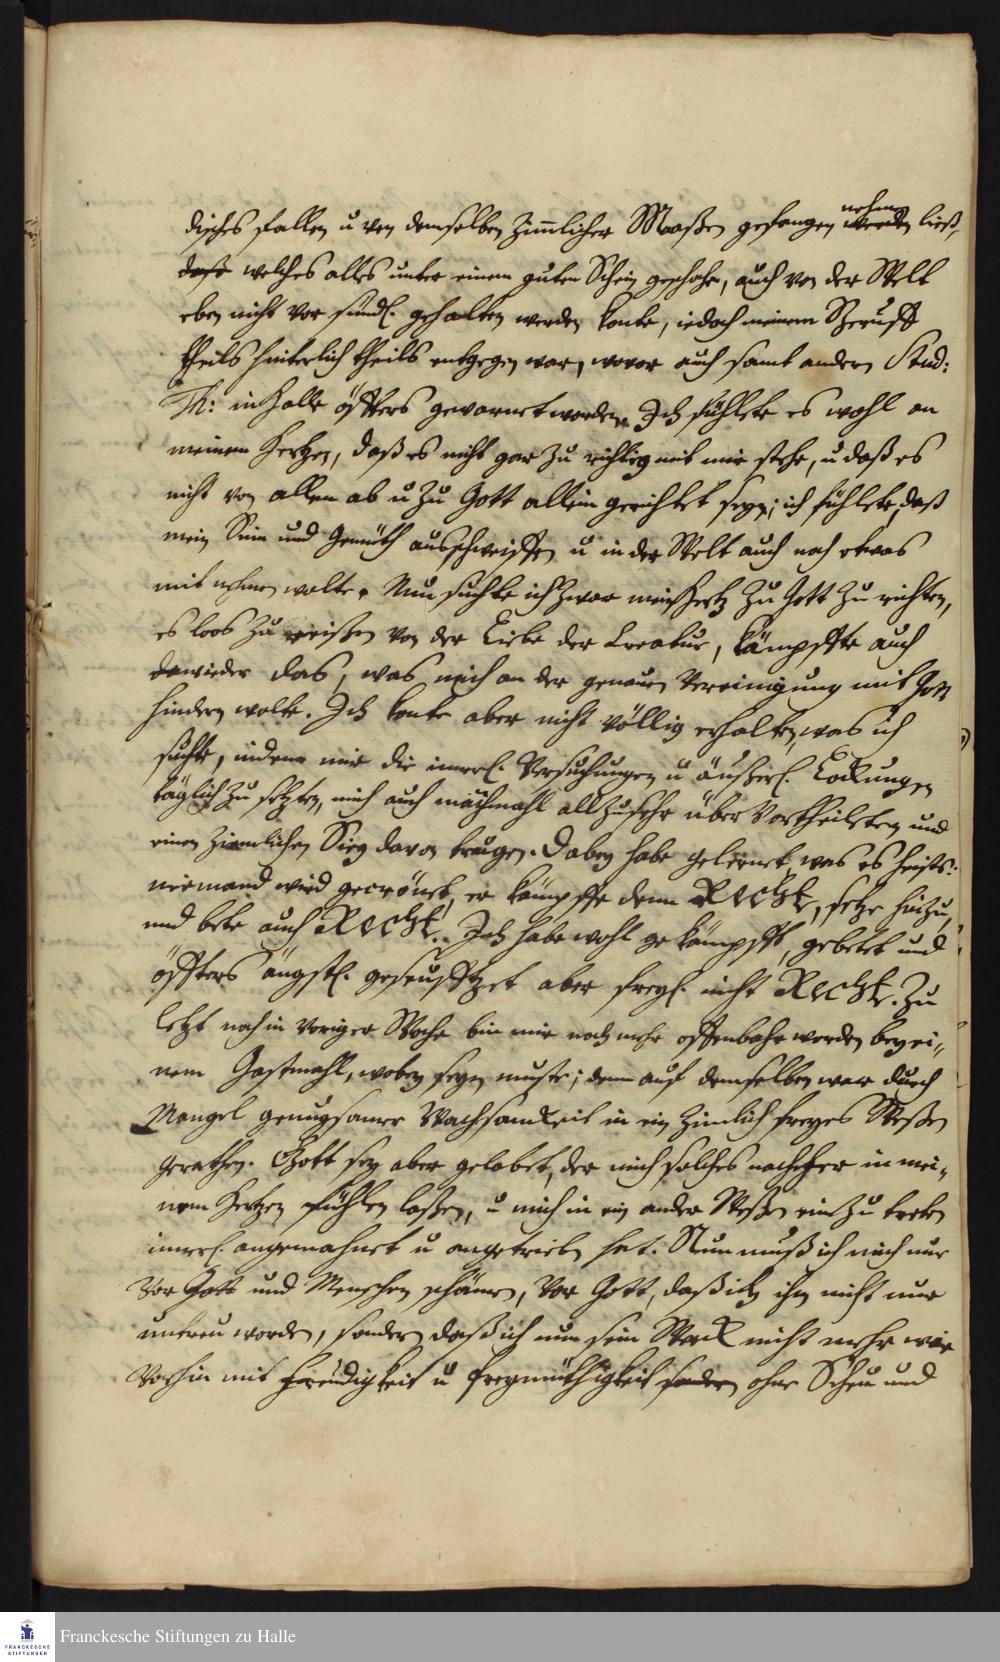 disches fallen u von demselben zimlicher Maaßen gefangen nehmen ließ,
welches alles unter einem guten Schein geschahe, auch von der Welt
eben nicht vor sündl. gehalten werden konte, iedoch meinem Beruff
theils hinterlich theils entgegen war, wovor auch samt andern Stud:
Th: in Halle öffters gewarnet worden. Ich fühlete es wohl an
meinem Hertzen, daß es nicht gar zu richtig mit mir stehe, u daß es
nicht von allen ab u zu Gott allein gerichtet sey; ich fühlete, daß
mein Sinn und Gemüth ausschweiffen u in der Welt auch noch etwas
mit nehmen wolte. Nun suchte ich zwar mein Hertz zu Gott zu richten,
es loos zu reißen von der Liebe der Creatur, kämpffte auch
dawieder das, was mich an der genauen Vereinigung mit Gott
hindern wolte. Ich konte aber nicht völlig erhalten, was ich
suchte, indem mir die innerl. Versuchungen u äußerl. Lockungen
täglich zu setzten, mich auch mañchmahl allzusehr über Vortheileten und
einen ziemlichen Sieg davon trugen. Dabey habe gelernet, was es heist:
niemand wird gecrönet, er kämpffe denn Recht, setze hinzu,
und bete auch Recht. Ich habe wohl gekämpfft, gebetet und
öffters ängstl. geseuffzet aber freyl. nicht Recht. Zu
letzt noch in voriger Woche bin mir noch mehr offenbahr worden bey ei,,
nem Gastmahl, wobey seyn muste; denn auf demselben war durch
Mangel genugsamer Wachsamkeit in ein zimlich freyes Weßen
gerathen. Gott sey aber gelobet, der mich solches nachher in mei,,
nem Hertzen fühlen laßen, u mich in ein ander Weßen einzutreten
innerl. angemahnet u angetrieben hat. Nun muß ich mich nur
vor Gott und Menschen schämen, vor Gott, daß ich ihm nicht nur
untreu worden, sondern daß ich nun sein Werck nicht mehr wie
vorhin mit Freudigkeit u freymüthigkeit ohne Scheu und
Franckesche Stiftungen zu Halle
FRANCKESCHE
STIFTUNGEN